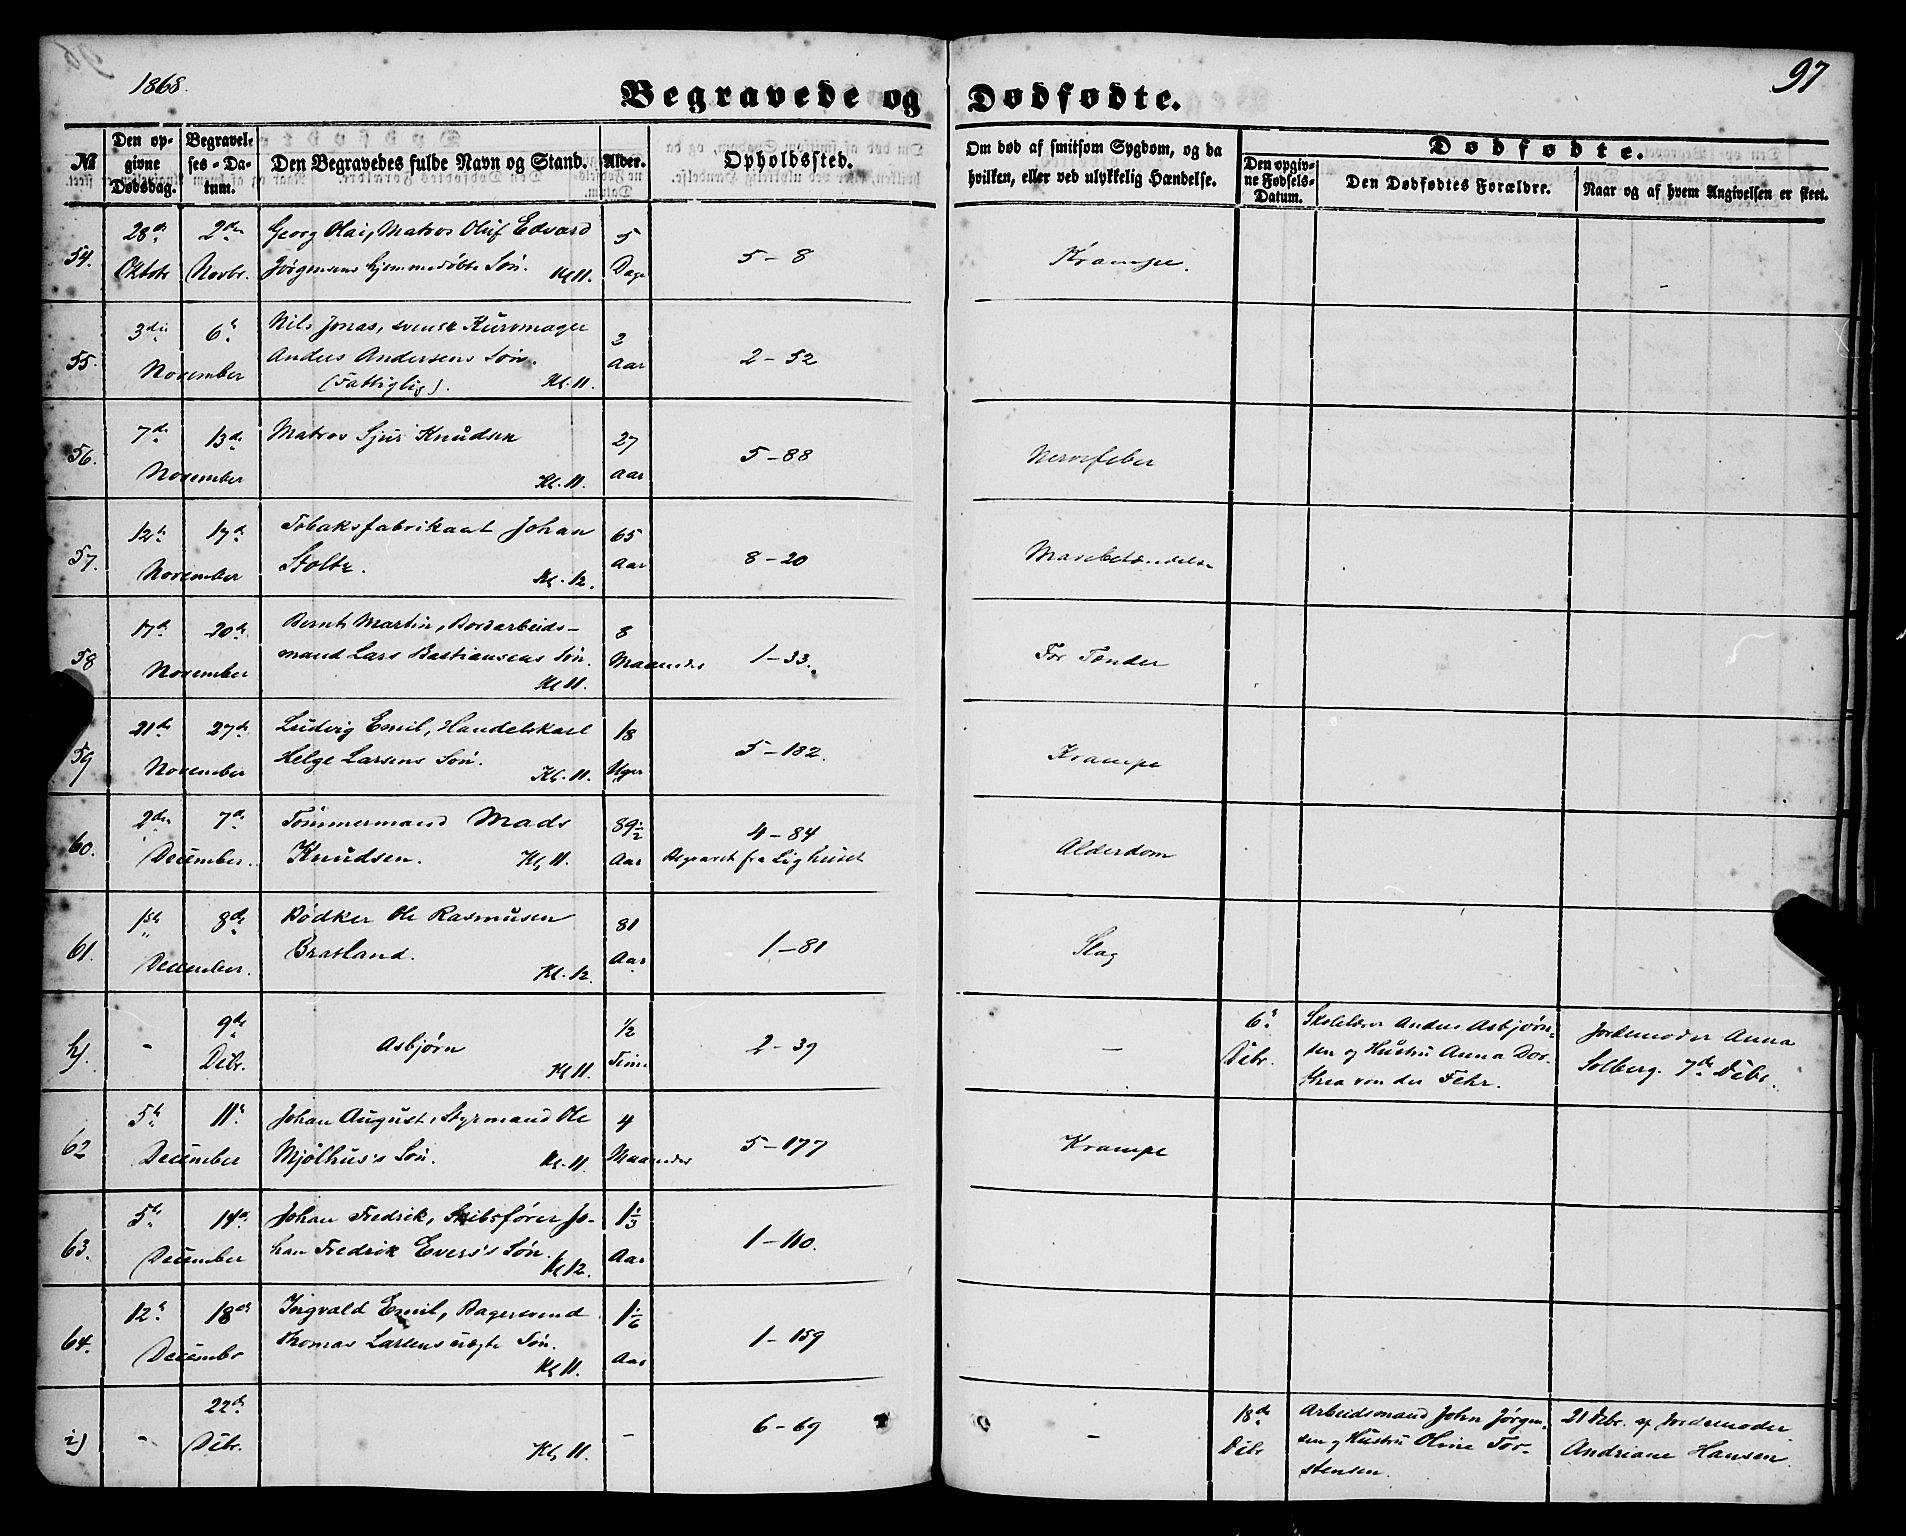 1868.
97
Begravede og Dødfødte.
№
Den opgivne Dødsdag.
Begravelses-Datum.
Den Begravedes fulde Navn og Stand.
Alder.
Opholdssted.
Om død af smitsom Sygdom, og da hvilken, eller ved ulykkelig Hændelse.
Dødfødte.
Den opgivne Fødsels-Datum.
Den Dødfødtes Forældre.
Naar og af hvem Angivelsen er skeet.
54. 28de Oktobr 2den Novbr. Georg Olai, Matros Oluf Edvard
Jørgensens hjemmedøbte Søn. Kl 11. 5 Dage 5-8 Krampe.
55. 3die 6te November Nils Jonas, svensk Kurvmager
Anders Andersens Søn.
(Fattiglig). Kl. 11. 2 Aar 2-52
56. 7de 13de November Matros Sjur Knudsen
Kl. 11. 27 Aar 5-88 Nervefeber
57. 12te 17de November Tobaksfabrikant Johan
Stoltz. Kl. 12. 65 Aar 8-20 Mavebetændelse
58 17de 20de November Bernt Martin, Bordarbeids-
mand Lars Bastiansens Søn.
Kl 11. 8 Maaneder 1-33. For Tænder
59 21de 27de November Ludvig Emil, Handelskarl
Helge Larsens Søn. Kl. 11. 18 Uger 5-182. Krampe
60. 2den 7de December. Tømmermand Mads
Knudsen. Kl 11. 89½ Aar 4-84
Begravet fra Lighuset Alderdom
61. 1ste 8de December. Bødker Ole Rasmusen
Bratland. Kl. 12 81 Aar 1-81 Slag
h). - 9de Debr. Asbjørn
Kl 11. ½ Time 2-39 - 6te Debr. Skolelærer Anders Asbjørn-
sen og Hustru Anna Dor-
thea von der Fehr. Jordemoder Anna
Solberg. 7de Debr.
62 5te 11te December Johan August, Styrmand Ole
Mjølhus's Søn. Kl. 11. 4 Maaneder 5-177 Krampe
63. 5te 14de December Johan Fredrik, Skibsfører Jo-
han Fredrik Evers's Søn. Kl 12. 1⅓ Aar 1-110.
64. 12te 18de Decembr Ingvald Emil, Bagersvend
Thomas Larsens uægte Søn.
Kl 11. 1⅙ Aar 1-159
i) - 22de Debr. Kl 11. - 6-69 - 18de Debr Arbeidsmand John Jørgen-
sen og Hustru Oline Tor-
stensen. 21 Debr. af Jordemoder
Andriane Hansen.